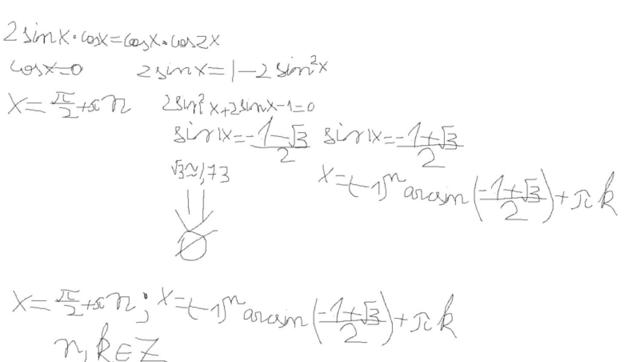 2sinx·cosx=cosx·cos2x
cosx=0 2sinx=1-2sin²x
x=π/2+πn 2sin²x+2sinx-1=0
sinx=(-1-√3)/2 sinx=(-1+√3)/2
√3≈1,73 x=(-1)ⁿarcsin((-1+√3)/2)+πk
∅
x=π/2+πn; x=(-1)ⁿarcsin((-1+√3)/2)+πk
n,k∈Z